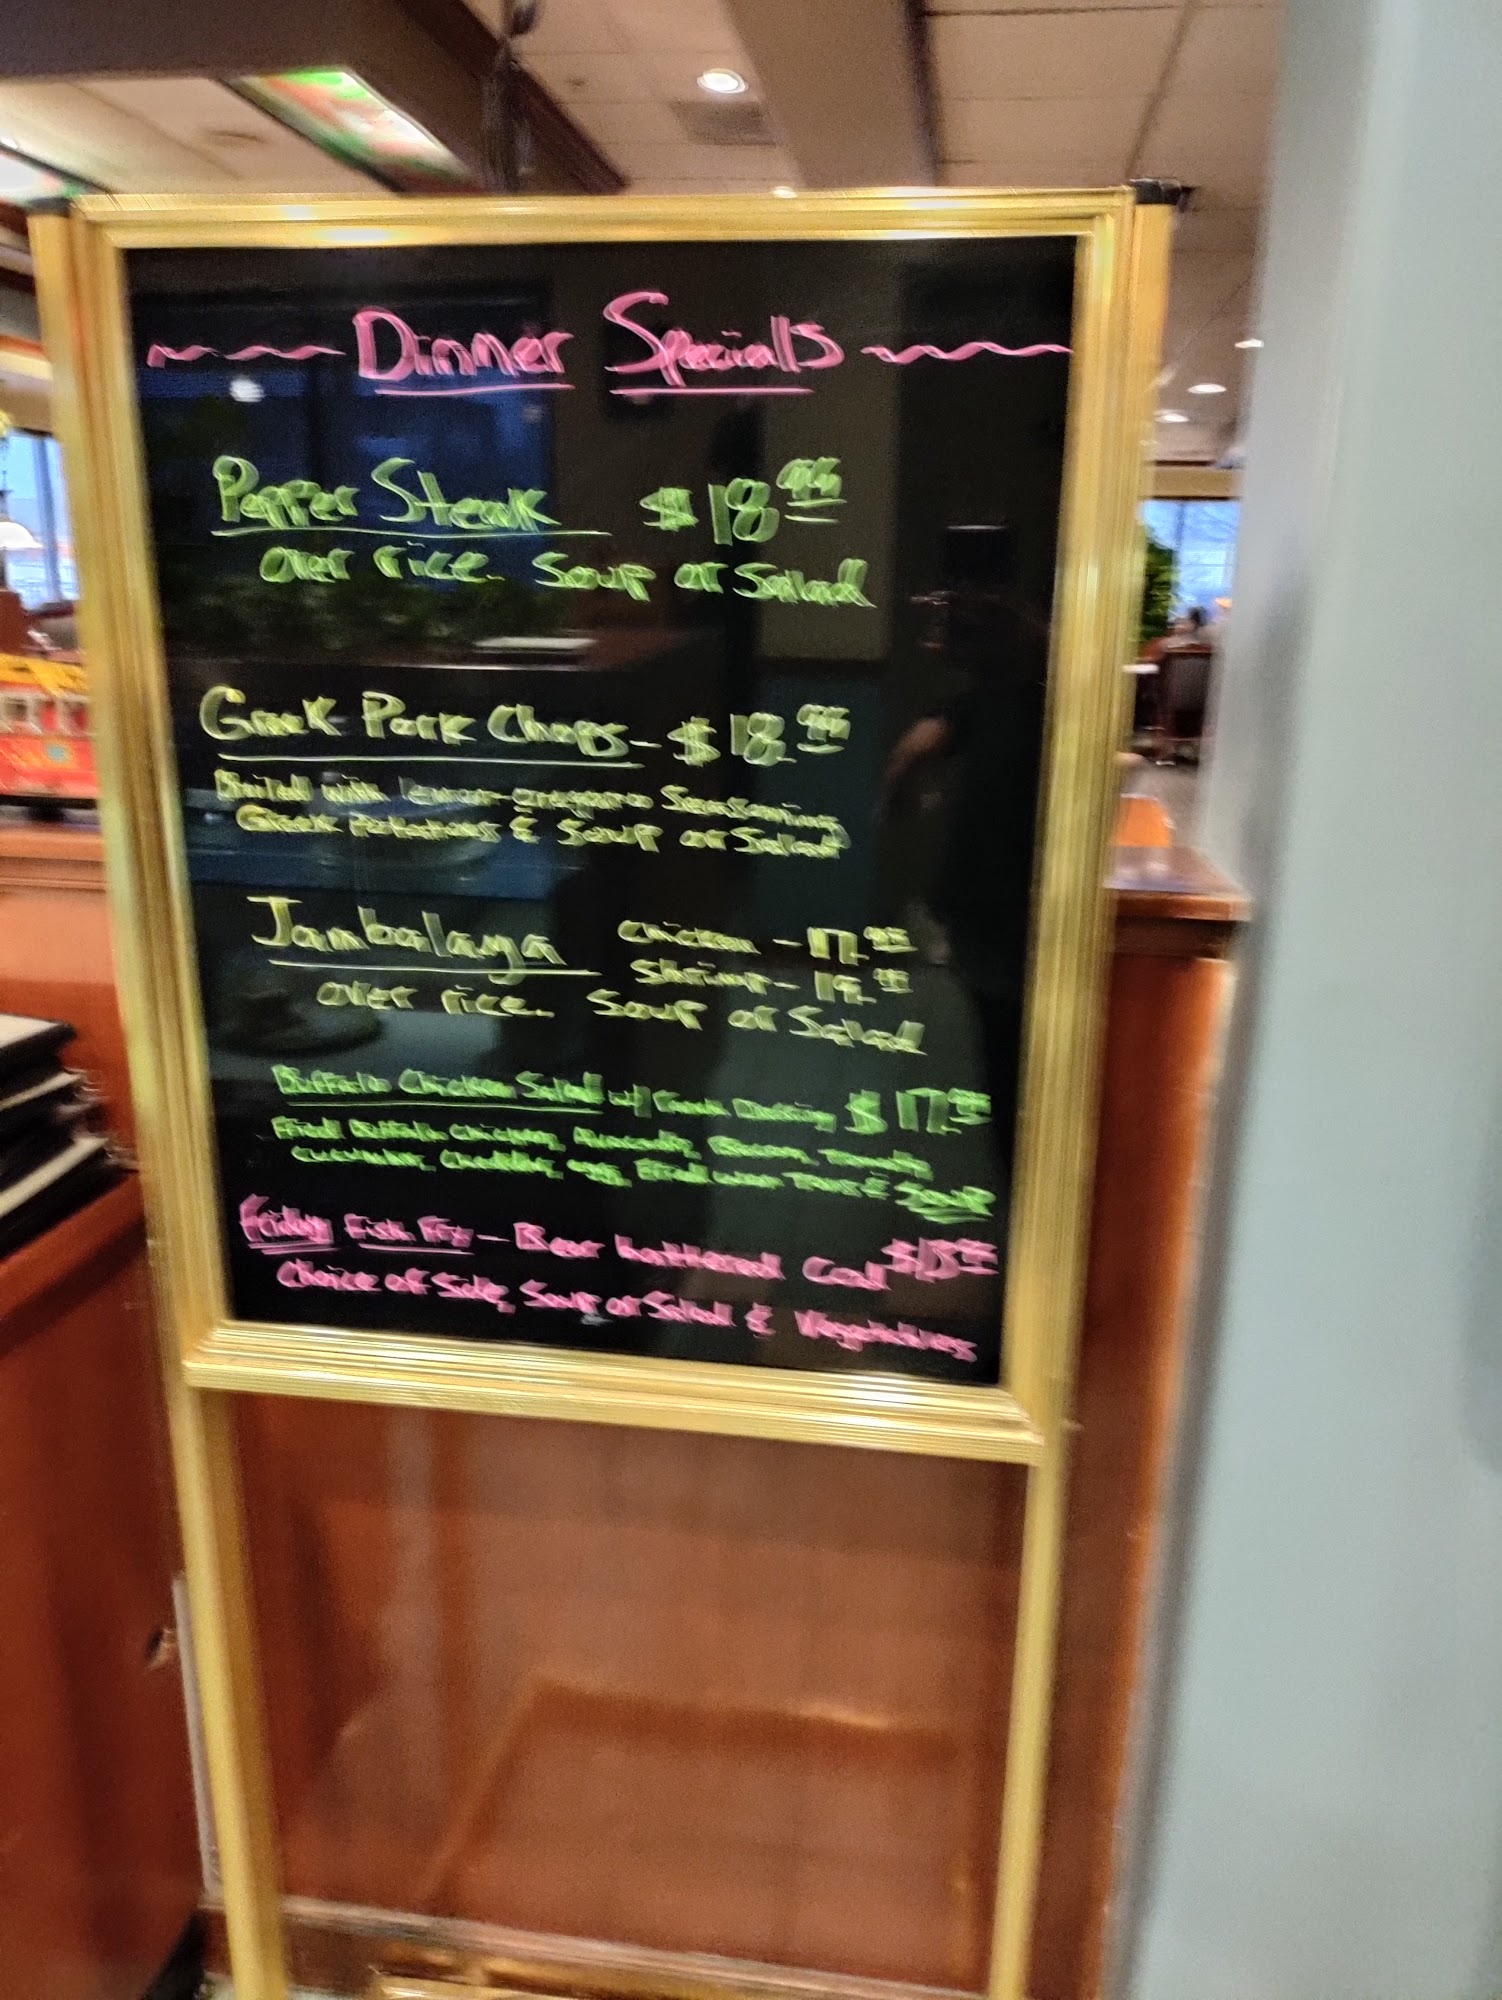 Dinner Specials
Pepper Steak $18.95
over rice. Soup or Salad
Greek Pork Chops - $18.95
Broiled with lemon-oregano Seasoning
Greek Potatoes & Soup or Salad
Jambalaya Chicken - 17.95
Shrimp - 19.95
over rice. Soup or Salad
Buffalo Chicken Salad w/ Dressing $17.95
Fried Buffalo chicken, Avocado, Bacon, Tomato,
Cucumber, Cheddar, egg, Fried & Soup
Friday Fish Fry - Beer battered Cod
Choice of Side, Soup or Salad & Vegetables